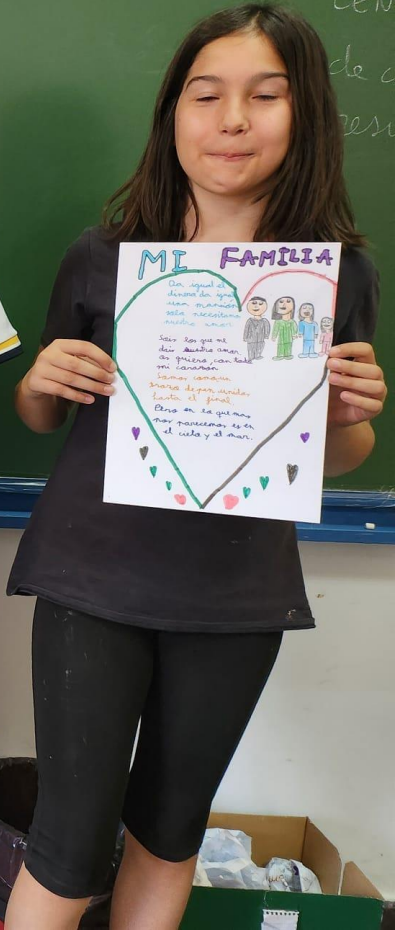 MI FAMILIA
Da igual el
dinero da igual
una mansión
sólo necesitamos
nuestro amor.
Sois los que me
dais vuestro amor
os quiero, con todo
mi corazón
Somos como un
trozo de pan unidos
hasta el final.
Pero en lo que mas
nos parecemos es en
el cielo y el mar.
CEN
de c
resu